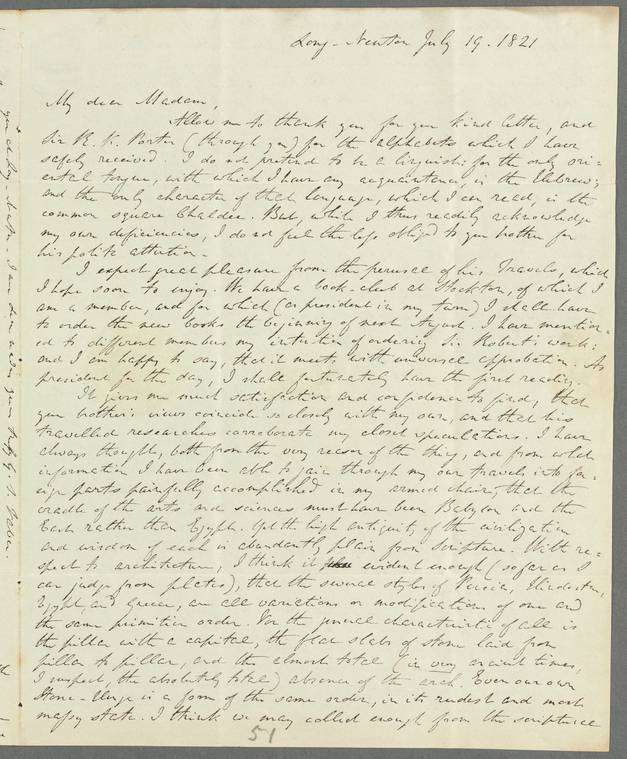 Long-Newton July 19. 1821
My dear Madam,
Allow me to thank you for your kind letter, and
Sir R. K. Porter (through you) for the alphabets which I have
safely received. I do not pretend to be a linguist: for the only ori=
ental tongue, with which I have any acquaintance, is the Hebrew;
and the only character of that language, which I can read, is the
common square Chaldee. But, while I thus readily acknowledge
my own deficiencies, I do not feel the less obliged to your brother for
his polite attention.
I expect great pleasure from the perusal of his Travels, which
I hope soon to enjoy. We have a book-club at Stockton, of which I
am a member, and for which (as president in my turn) I shall have
to order the new books the beginning of next August. I have mention=
ed to different members my intention of ordering Sir Robert's work:
and I am happy to say, that it meets with universal approbation. As
president for the day, I shall fortunately have the first reading.
It gives me much satisfaction and confidence to find, that
your brother's views coincide so closely with my own, and that his
travelled researches corroborate my closet speculations. I have
always thought, both from the very reason of the thing, and from what
information I have been able to gain through my own travels into for=
eign parts painfully accomplished in my armed chair, that the
cradle of the arts and sciences must have been Babylon and the
East rather than Egypt. Yet the high antiquity of the civilization
and wisdom of each is abundantly plain from scripture. With re=
spect to architecture, I think it evident enough (so far as I
can judge from plates), that the several styles of Persia, Hindostan,
Egypt, and Greece, are all variations or modifications of one and
the same primitive order. For the general characteristic of all is
the pillar with a capital, the flat slabs of stone laid from
pillar to pillar, and the almost total (in very ancient times,
I suspect, the absolutely total) absence of the arch. Even our own
Stone-Henge is a form of the same order, in its rudest and most
massy state. I think we may collect enough from the scriptural
51